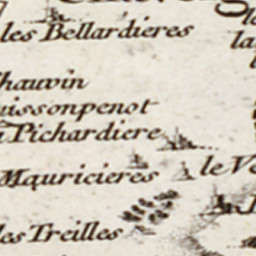 les Bellardieres
la
Chauvin
uissonpenot
a Pichardiere
Mauricieres
le Ve
les Treilles